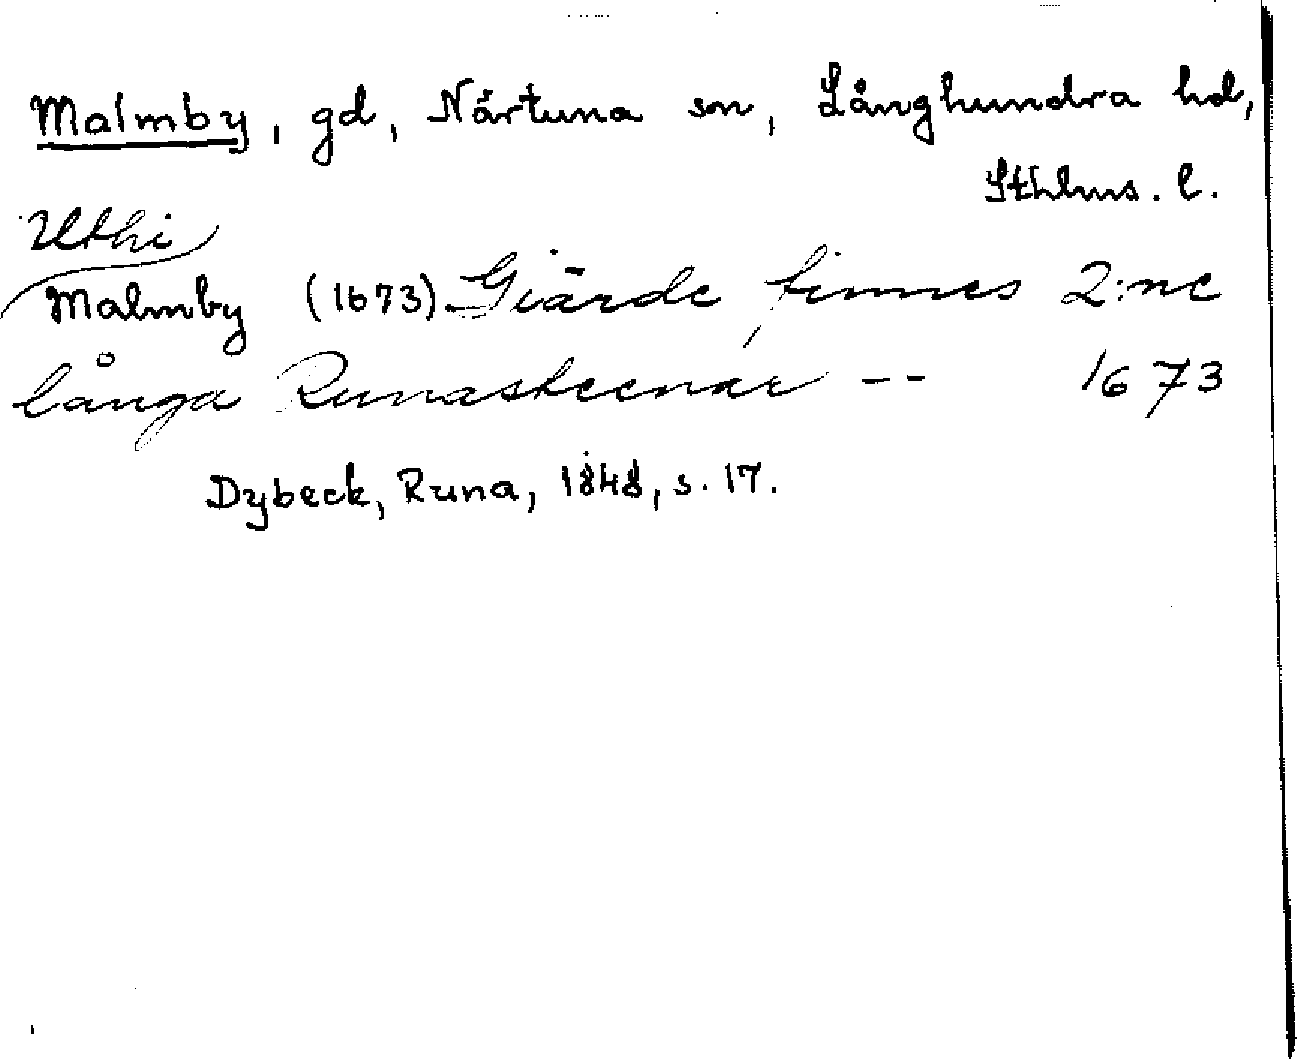 Malmby, gd, Närtuna sn, Långhundra hd,
Sthlms. l.
Uthi
Malmby (1673) Giärde finnes 2:ne
långa Runasteenar -- 1673
Dybeck, Runa, 1848, s. 17.